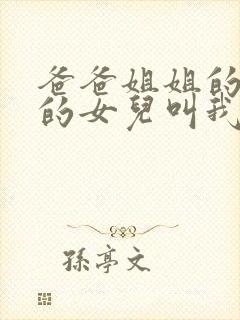 爸爸姐姐的
的女兒叫我
孫亭文